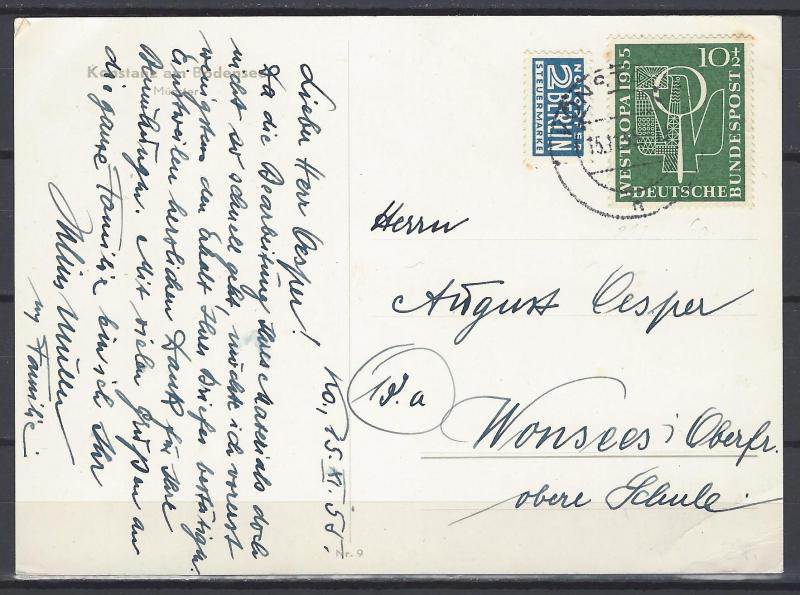 Konstanz am Bodensee
Münster
Lieber Herr Oesper!
Ko., 15. XI. 55.
Da die Bearbeitung Ihres Materials doch
nicht so schnell geht, möchte ich vorerst
wenigstens den Erhalt Ihres Briefes bestätigen.
Einstweilen herzlichen Dank für Ihre
Bemühungen. Mit vielen Grüßen an
die ganze Familie bin ich Ihr
Julius Müller
u. Familie.
Nr. 9
NOTOPFER
2 BERLIN
STEUERMARKE
10+2
WESTROPA 1955
DEUTSCHE
BUNDESPOST
15.11
Herrn
August Oesper
(13a)
Wonsees, Oberfr.
obere Schule.